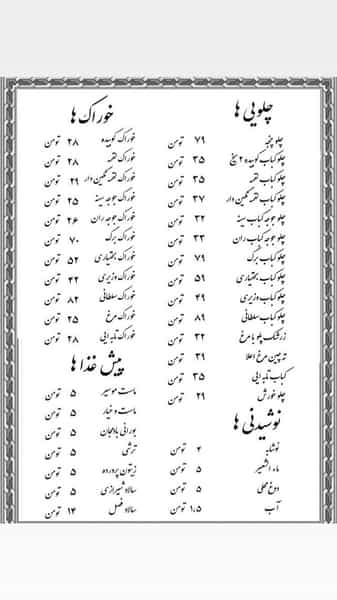 چلویی ها
چلو چنجه ۷۹ تومن
چلو کباب کوبیده ۲ سیخ ۳۵ تومن
چلو کباب لقمه ۳۵ تومن
چلو کباب لقمه نگین دار ۳۷ تومن
چلو جوجه کباب سینه ۳۲ تومن
چلو جوجه کباب ران ۳۳ تومن
چلو کباب برگ ۷۹ تومن
چلو کباب بختیاری ۵۹ تومن
چلو کباب وزیری ۴۹ تومن
چلو کباب سلطانی ۸۹ تومن
زرشک پلو با مرغ ۳۲ تومن
ته چین مرغ اعلا ۳۹ تومن
کباب تابه ایی ۳۵ تومن
چلو خورش ۲۹ تومن
نوشیدنی ها
نوشابه ۴ تومن
ماء الشعیر ۵ تومن
دوغ محلی ۵ تومن
آب ۱,۵ تومن
خوراک ها
خوراک کوبیده ۲۸ تومن
خوراک لقمه ۲۸ تومن
خوراک لقمه نگین دار ۲۹ تومن
خوراک جوجه سینه ۲۵ تومن
خوراک جوجه ران ۲۶ تومن
خوراک برگ ۷۰ تومن
خوراک بختیاری ۵۲ تومن
خوراک وزیری ۴۲ تومن
خوراک سلطانی ۸۲ تومن
خوراک مرغ ۲۵ تومن
خوراک تابه ایی ۲۸ تومن
پیش غذا ها
ماست موسیر ۵ تومن
ماست و خیار ۵ تومن
بورانی بادمجان ۵ تومن
ترشی ۵ تومن
زیتون پرورده ۵ تومن
سالاد شیرازی ۵ تومن
سالاد فصل ۱۴ تومن